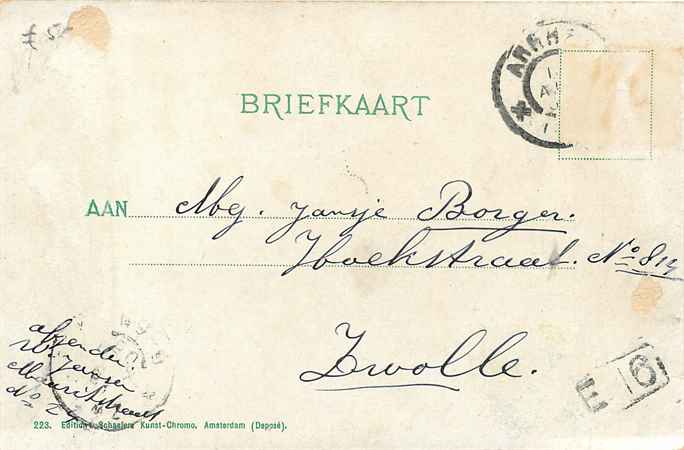 ARNH
BRIEFKAART
AAN Mej. Jansje Borger.
Hoekstraat. No 8
Zwolle.
afzender
W. Jansen
Mauritsstraat
No 24
E 6
223. Edition Schaefers Kunst-Chromo, Amsterdam (Deposé).